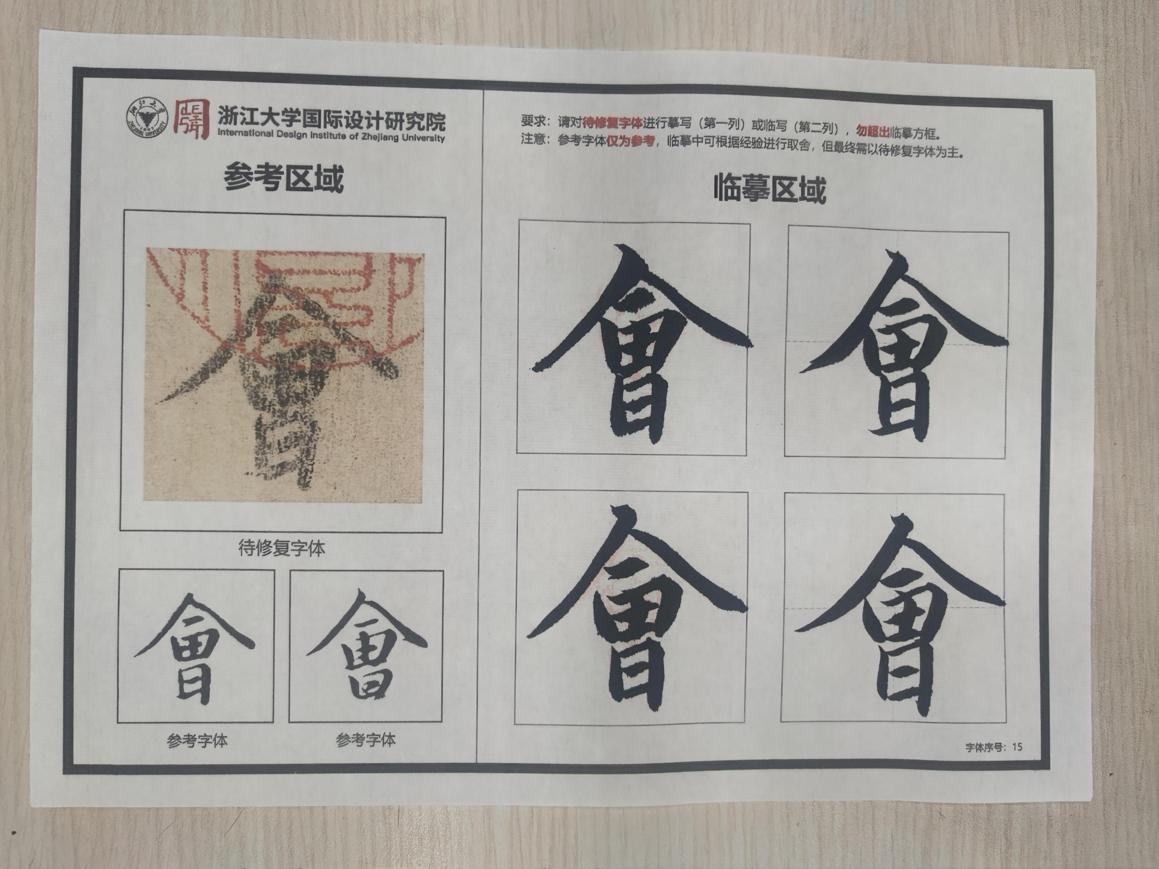 浙江大学国际设计研究院
International Design Institute of Zhejiang University
参考区域
會
待修复字体
會
會
参考字体
参考字体
要求：请对待修复字体进行摹写（第一列）或临写（第二列），勿超出临摹方框。
注意：参考字体仅为参考，临摹中可根据经验进行取舍，但最终需以待修复字体为主。
临摹区域
會
會
會
會
字体序号：15